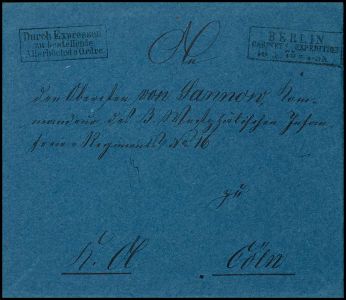 Durch Expressen
zu bestellende
Allerhöchste Ordre.
BERLIN
CABINET EXPEDITION
An
den Obersten von Sannow, Kom-
mandeur des 3. Westphälischen Infan-
terie-Regiments No 16
zu
Cöln